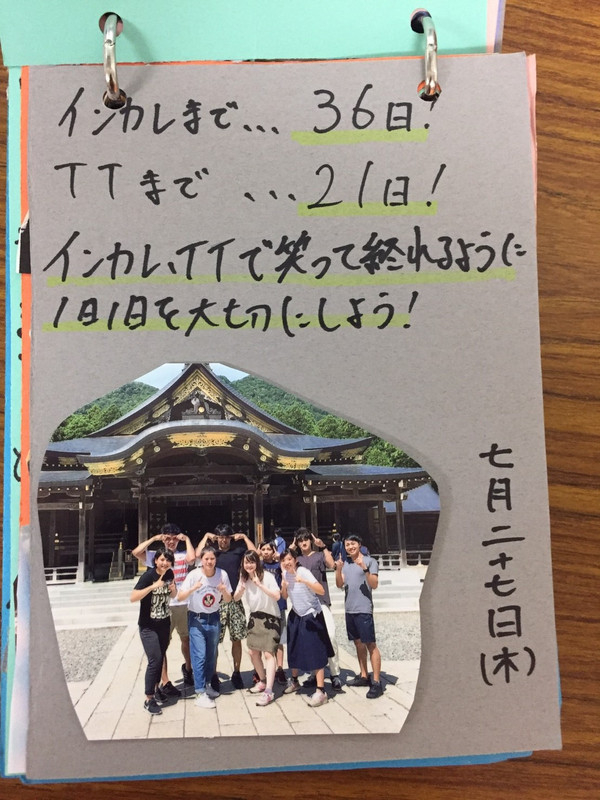 インカレまで、、、36日!
TTまで、、、21日!
インカレ、TTで笑って終れるように
1日1日を大切にしよう!
七月二十七日(木)